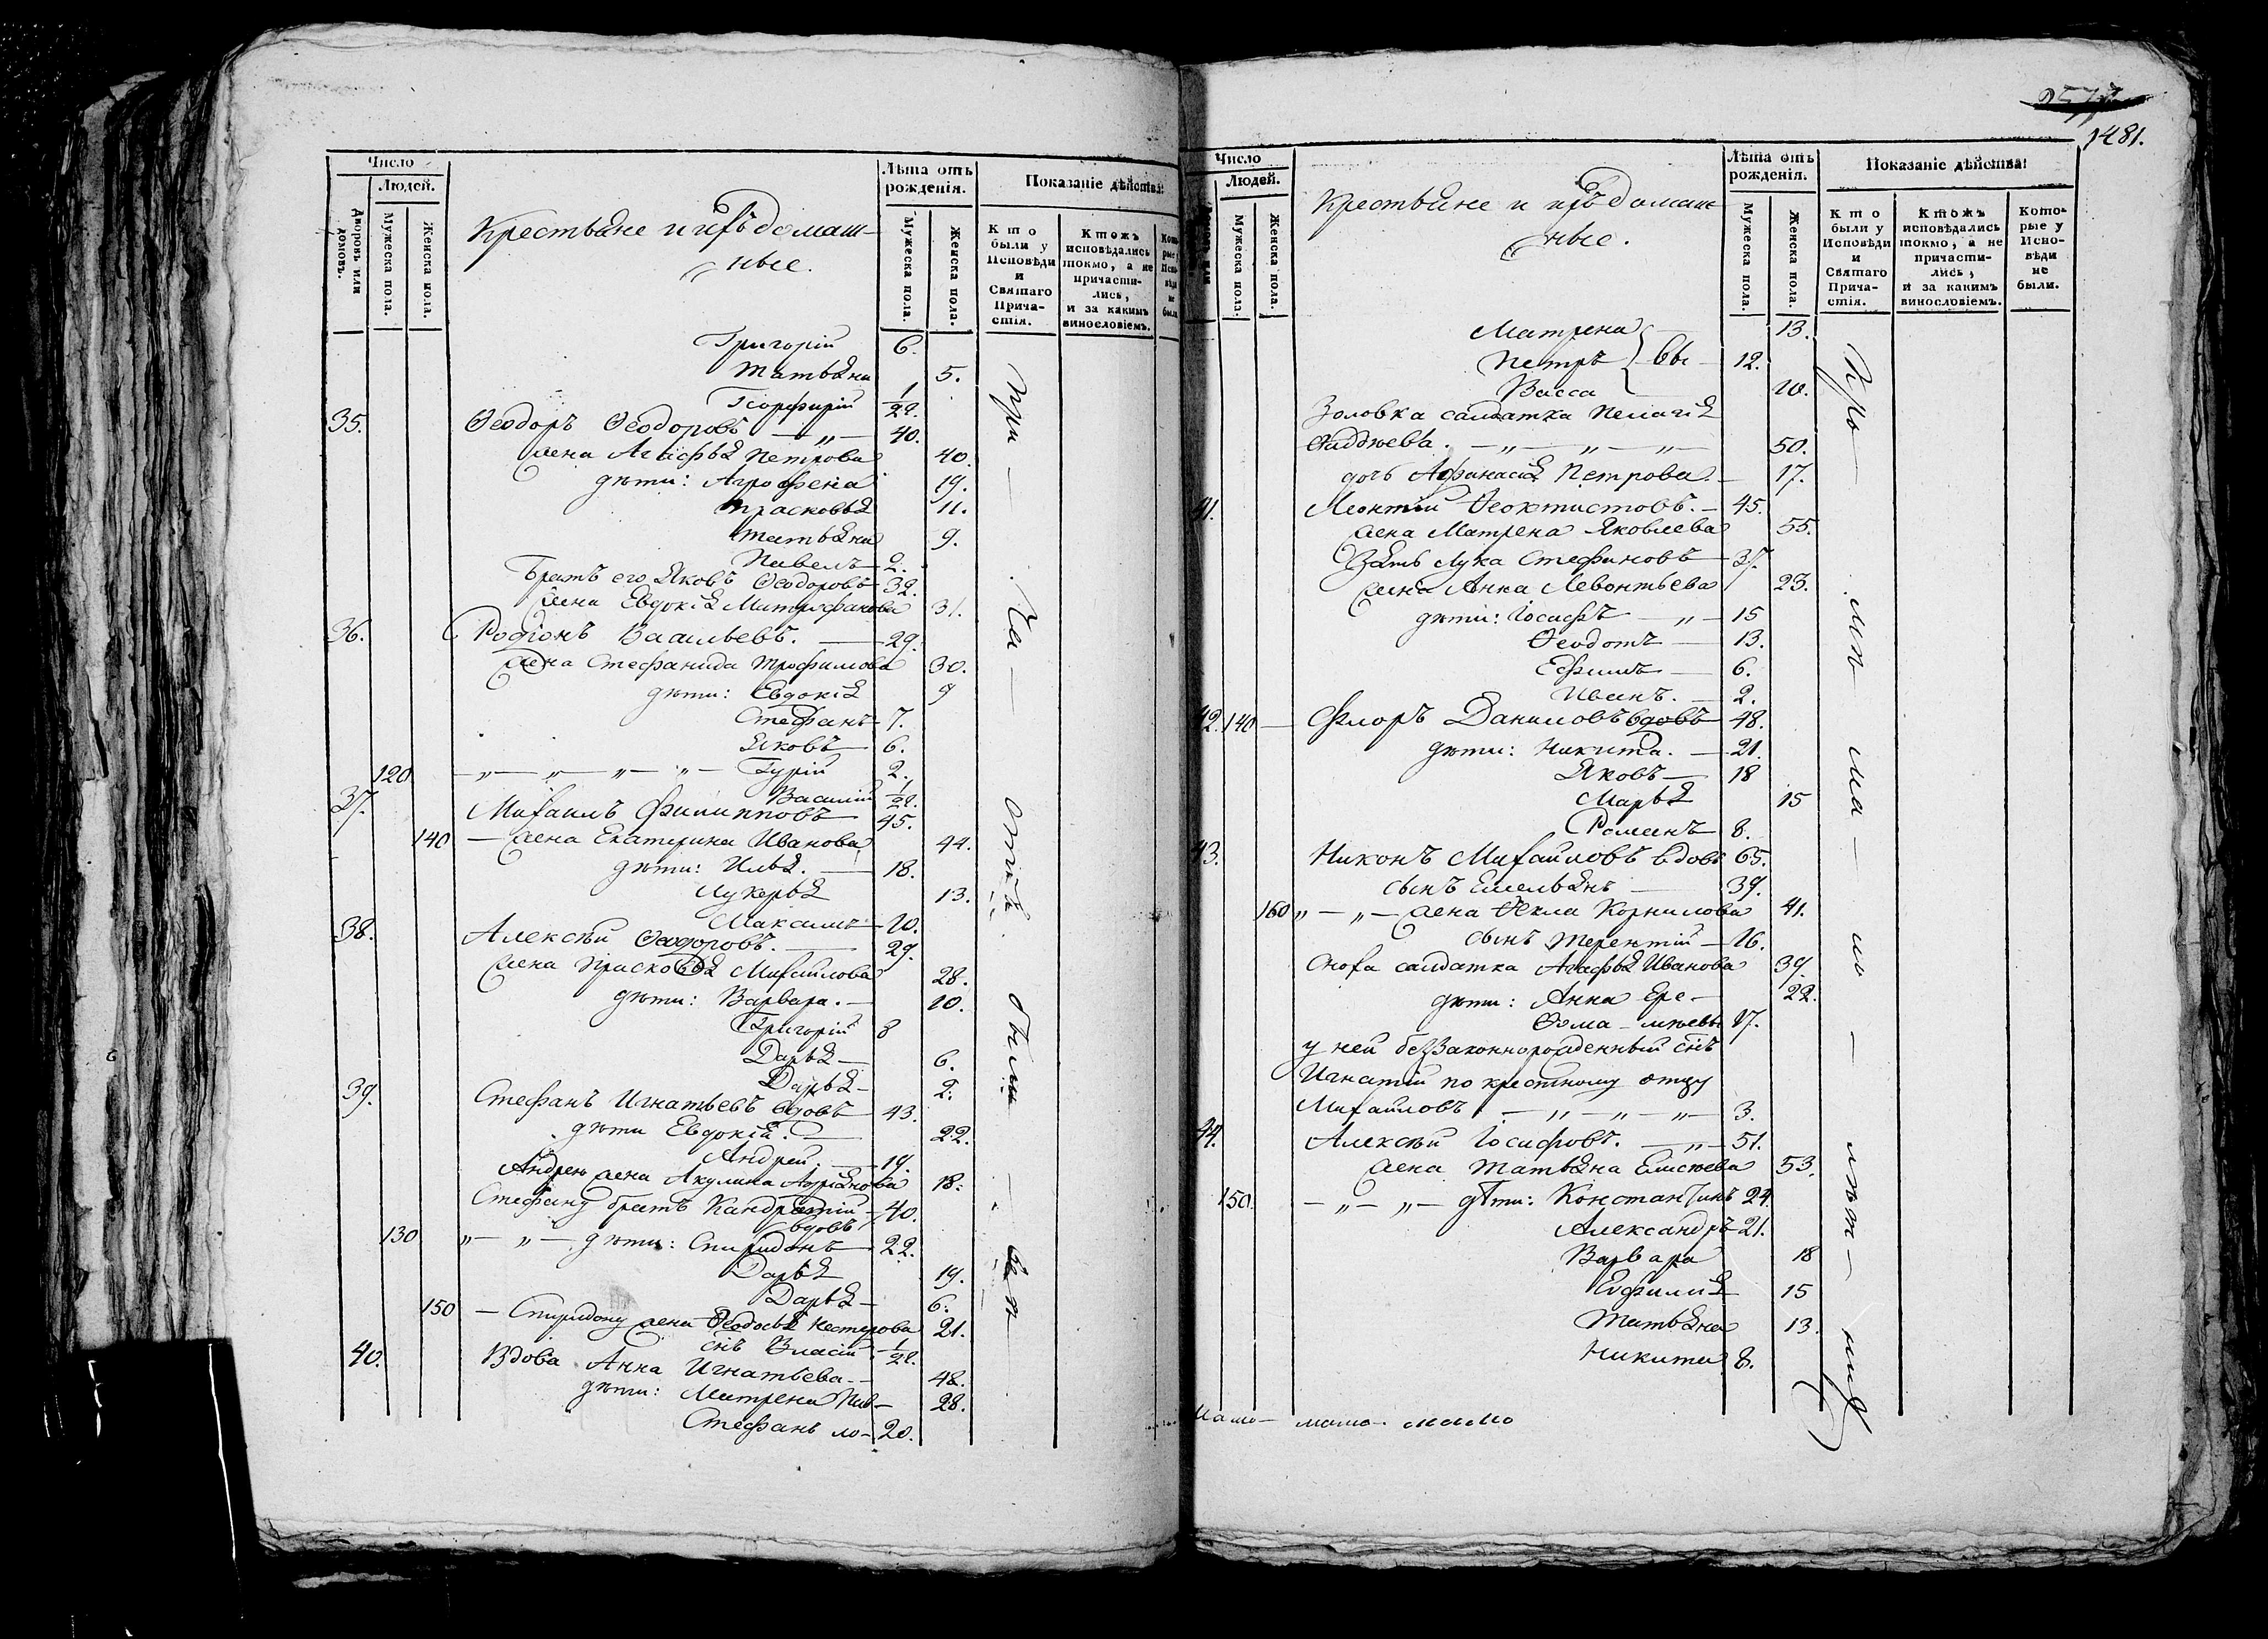 Число
Людей.
Дворовъ или домовъ.
Мужеска пола.
Женска пола.
Крестьяне и ихъ домаш-
ные.
Лѣта отъ рожденія.
Мужеска пола.
Женска пола.
Показаніе дѣйства:
Кто были у Исповѣди и Святаго Прича-стія.
Ктожъ исповѣдались токмо, а не причасти-лись, и за какимъ винословіемъ.
Григорій 6.
Татьяна 5.
Порфирій 1/2г.
35. Ѳеодоръ Ѳеодоровъ — „ — 40.
жена Агафья Петрова 40.
дѣти: Агрофена 19.
Прасковья 11.
Татьяна 9.
Павелъ 2.
Братъ его Яковъ Ѳеодоровъ 32.
жена Евдокія Митрофанова 31.
36. Родіонъ Васильевъ. — 29.
жена Стефанида Трофимова 30.
дѣти: Евдокія 9
Стефанъ 7.
Яковъ 6.
120 — „ — „ — „ — „ — Гурій 2.
Василій 1/2г.
37. Михаилъ Филипповъ 45.
140 — жена Екатерина Иванова 44.
дѣти: Илья. — 18.
Лукерья 13.
Максимъ 10.
38. Алексѣй Ѳеодоровъ. — 29.
жена Прасковья Михайлова 28.
дѣти: Варвара. — 10.
Григорій 8
Дарья — 6.
Дарья — 2.
39. Стефанъ Игнатьевъ вдовъ 43.
дѣти Евдокія. — 22.
Андрей. — 19.
Андрею жена Акулина Андріянова 18.
Стефану братъ Кандратій 40.
вдовъ
130 „ — „ — дѣти: Спиридонъ 22.
Дарья 19.
Дарья — 6.
150 — Спиридону жена Ѳеодосья Нестерова 21.
снъ Власій 1/2г.
40. Вдова Анна Игнатьева — 48.
дѣти: Матрена Пав- 28.
Стефанъ ло- 20.
При — ча — стѣ были — вси
2577
1481.
Число
Людей.
Мужеска пола.
Женска пола.
Крестьяне и ихъ домаш-
ные.
Лѣта отъ рожденія.
Мужеска пола.
Женска пола.
Показаніе дѣйства:
Кто были у Исповѣди и Святаго Прича-стія.
Ктожъ исповѣдались токмо, а не причасти-лись, и за какимъ винословіемъ.
Кото-рые у Испо-вѣди не были.
Матрена 13.
Петръ } вы — 12.
Васса 10.
Золовка салдатка Пелагія
Фаддѣева. — „ — „ — „ — 50.
дочь Афанасія Петрова. — 17.
41. Леонтій Ѳеоктистовъ. — 45.
жена Матрена Яковлева 55.
Зять Лука Стефановъ 37.
жена Анна Левонтьева 23.
дѣти: Іосифъ — „ — 15
Ѳеодотъ — 13.
Ефимъ — 6.
Иванъ. — 2.
42. 140 — Флоръ Даниловъ вдовъ 48.
дѣти: Никита. — 21.
Яковъ — 18
Марья 15
Романъ 8.
43. Никонъ Михайловъ вдовъ 65.
сынъ Емельянъ — 39.
160 „ — „ — жена Ѳекла Корнилова 41.
сынъ Терентій — 16.
Сноха салдатка Агафья Иванова 39.
дѣти: Анна Ере — 22.
Ѳома — мѣевы 17.
у ней беззаконнорожденный снъ
Игнатій по крестному отцу
Михайловъ. — „ — „ — „ — 3.
44. Алексѣй Іосифовъ. — „ — 51.
жена Татьяна Елисѣева 53.
150. — „ — „ — дѣти: Константинъ 24.
Александръ 21.
Варвара 18
Евфимія 15
Татьяна 13.
Никита 8.